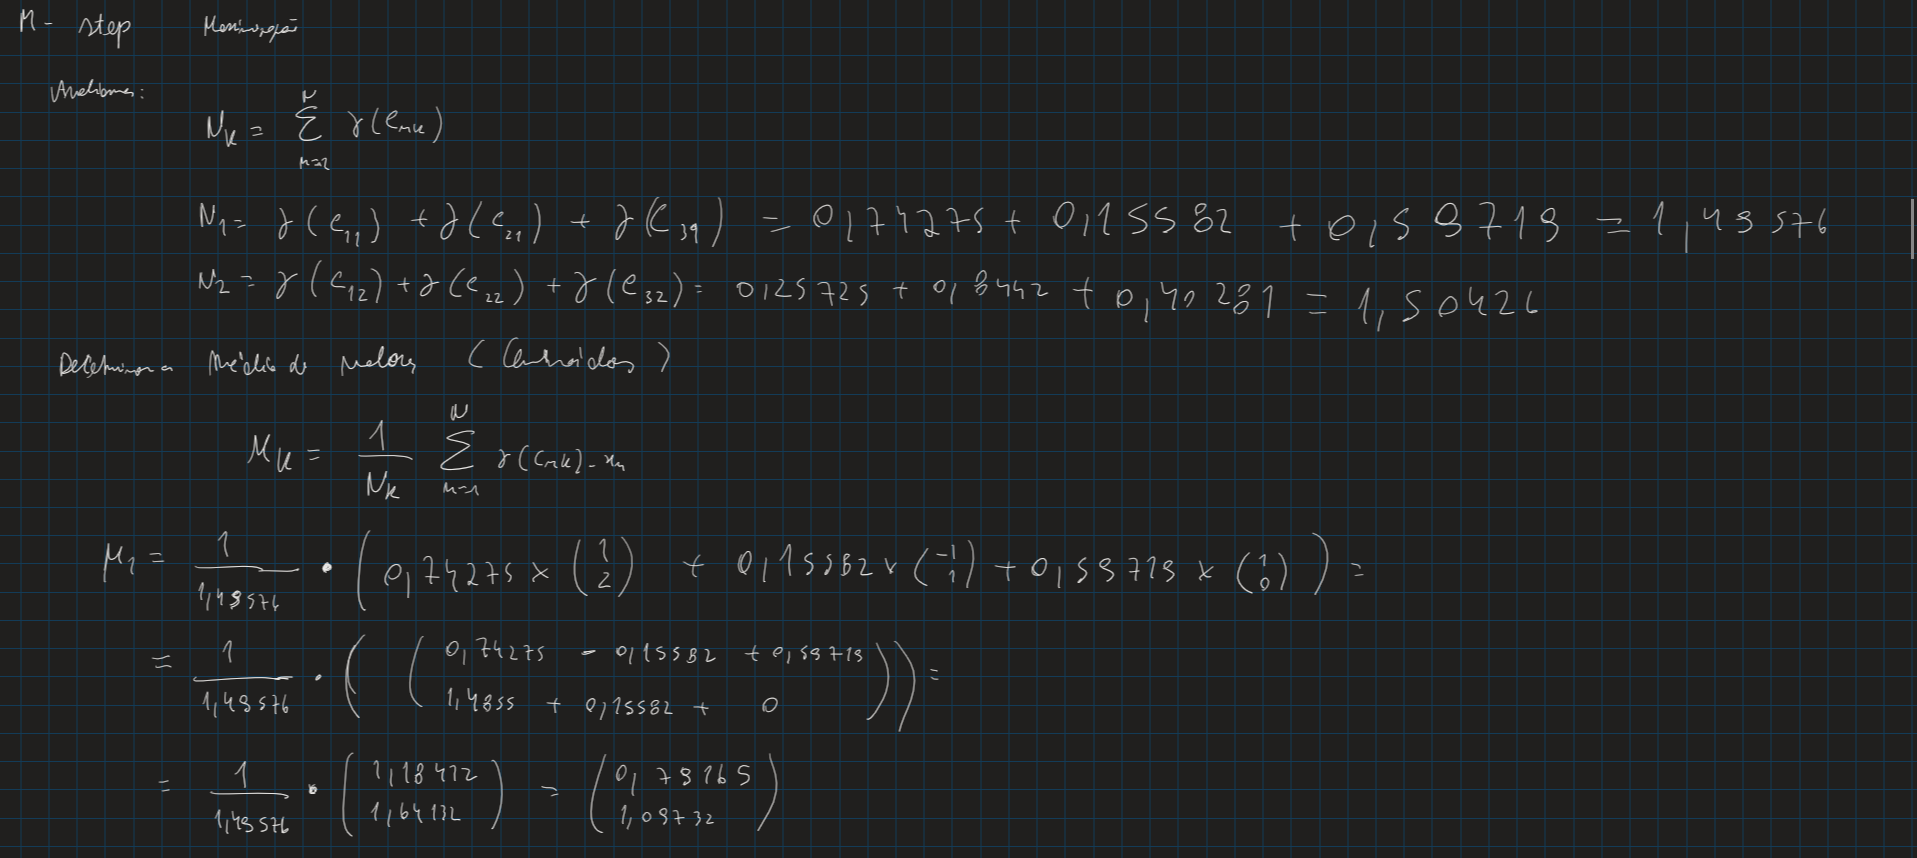 M-step Maximização
Avaliamos:
N_k = \sum_{n=1}^{N} γ(c_{nk})
N_1 = γ(c_{11}) + γ(c_{21}) + γ(c_{31}) = 0,74275 + 0,15582 + 0,59719 = 1,49576
N_2 = γ(c_{12}) + γ(c_{22}) + γ(c_{32}) = 0,25725 + 0,8442 + 0,40281 = 1,50426
Determinar a Média de (Centroides)
μ_k = \frac{1}{N_k} \sum_{n=1}^{N} γ(c_{nk}) · x_n
μ_1 = \frac{1}{1,49576} · (0,74275 × (1 2) + 0,15582 × (-1 1) + 0,59719 × (1 0)) =
= \frac{1}{1,49576} · ((0,74275 - 0,15582 + 0,59719
1,4855 + 0,15582 + 0)) =
= \frac{1}{1,49576} · (1,18412 1,64132) = (0,79165 1,09732)